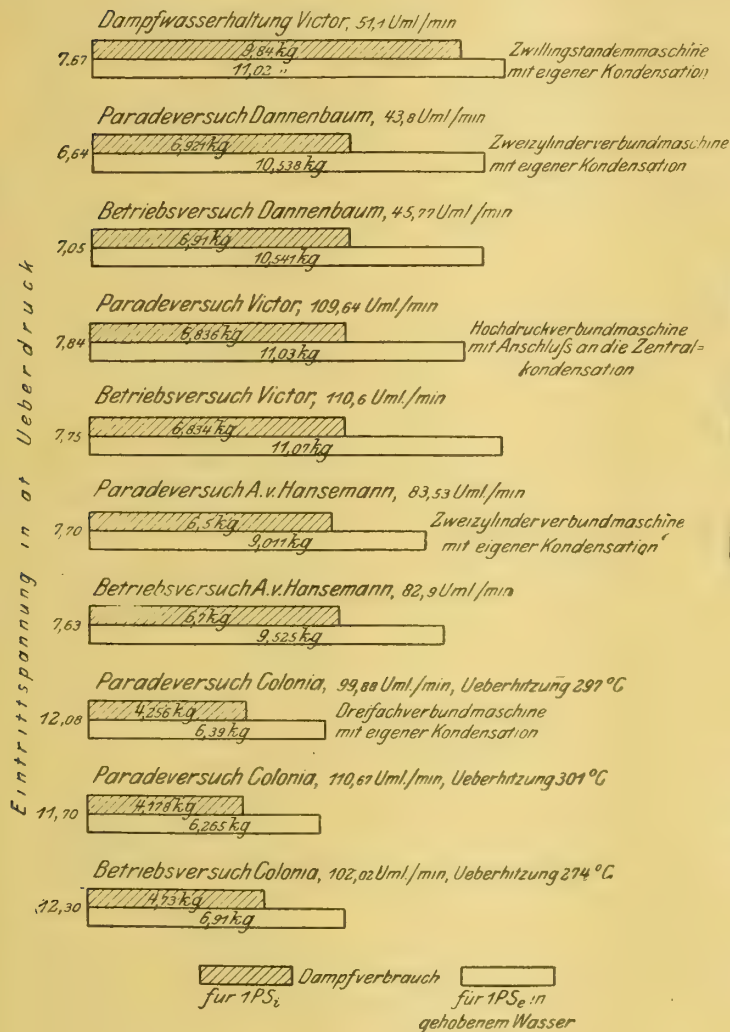 Dampfwasserhaltung Victor, 51,1 Uml/min
7,67
9,84 kg
11,02 "
Zwillingstandemmaschine
mit eigener Kondensation
Paradeversuch Dannenbaum, 43,8 Uml/min
6,64
6,921 kg
10,538 kg
Zweizylinderverbundmaschine
mit eigener Kondensation
Betriebsversuch Dannenbaum, 45,77 Uml/min
7,05
6,91 kg
10,541 kg
Paradeversuch Victor, 109,64 Uml./min
7,84
6,836 kg
11,03 kg
Hochdruckverbundmaschine
mit Anschluß an die Zentral=
kondensation
Betriebsversuch Victor, 110,6 Uml./min
7,75
6,834 kg
11,07 kg
Paradeversuch A.v.Hansemann, 83,53 Uml./min
7,70
6,5 kg
9,011 kg
Zweizylinderverbundmaschine
mit eigener Kondensation
Betriebsversuch A.v.Hansemann, 82,9 Uml/min
7,63
6,7 kg
9,525 kg
Paradeversuch Colonia, 99,88 Uml./min, Ueberhitzung 297 °C
12,08
4,256 kg
6,39 kg
Dreifachverbundmaschine
mit eigener Kondensation
Paradeversuch Colonia, 110,67 Uml./min, Ueberhitzung 301 °C
11,70
4,178 kg
6,265 kg
Betriebsversuch Colonia, 102,02 Uml./min, Ueberhitzung 274 °C
12,30
4,73 kg
6,91 kg
Eintrittspannung in at Ueberdruck
Dampfverbrauch
für 1 PSi
für 1 PSe in
gehobenem Wasser